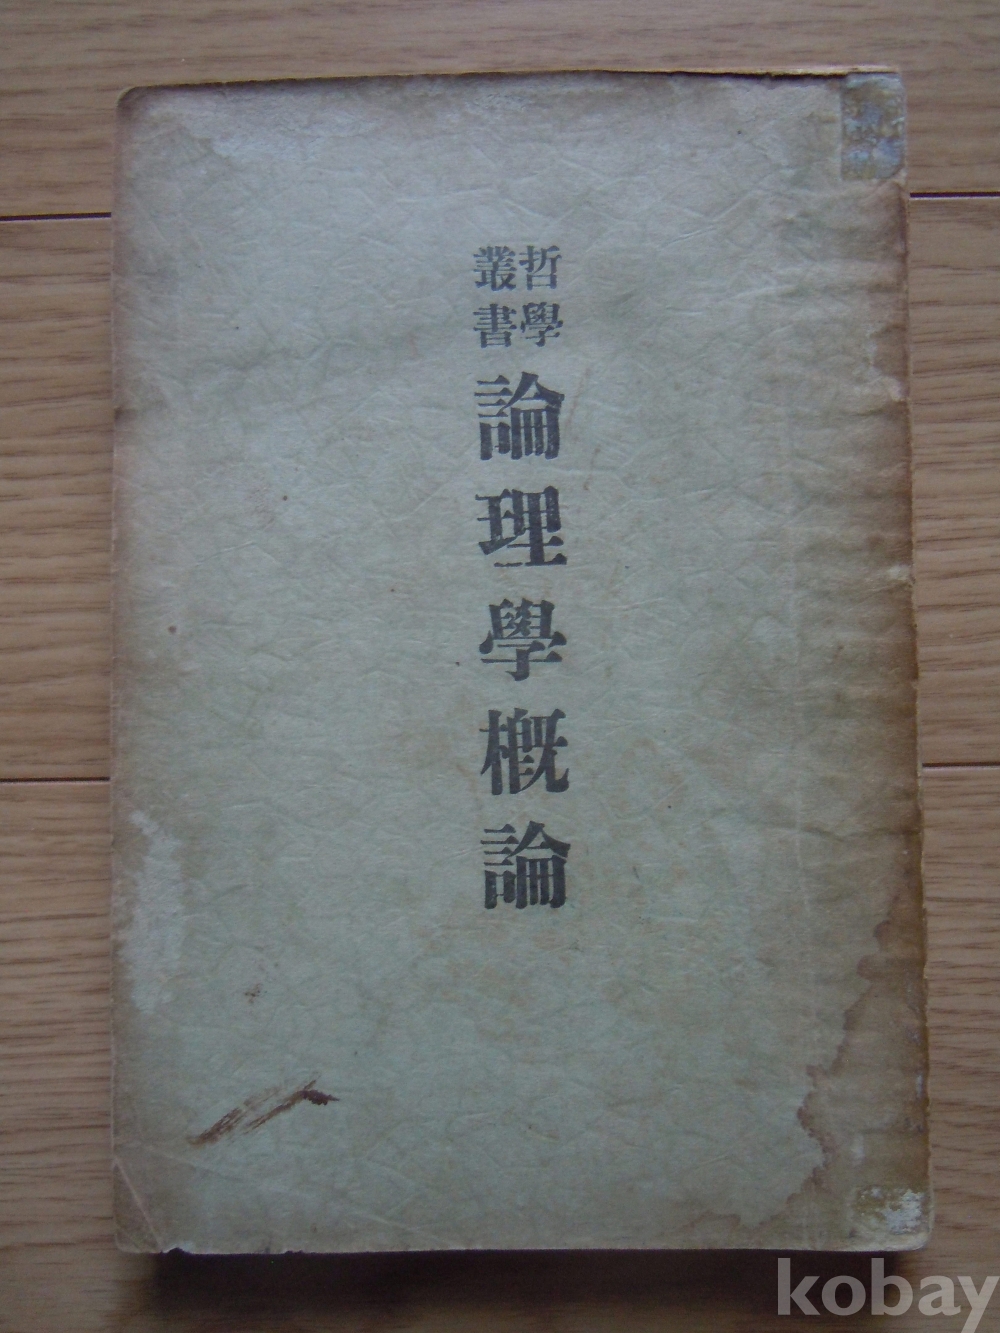 哲學
叢書
論理學概論
kobay